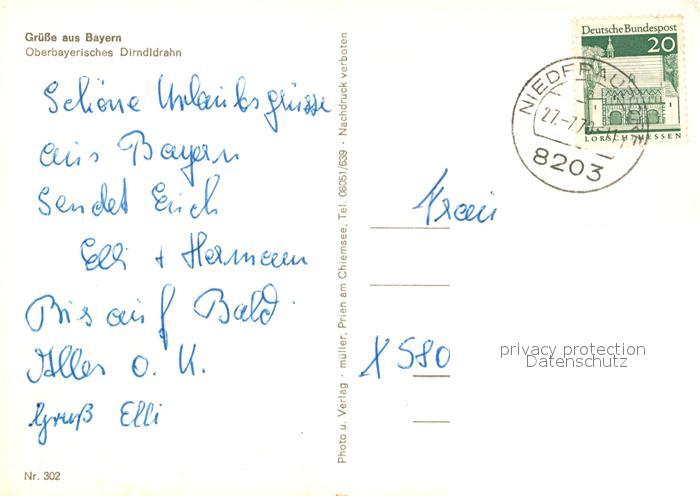 Grüße aus Bayern
Oberbayerisches Dirndldrahn
Schöne Urlaubsgrüsse
aus Bayern
Sendet Euch
Elli + Hermann
Bis auf Bald
Alles o. K.
Gruß Elli
Nr. 302
Photo u. Verlag · müller, Prien am Chiemsee, Tel. 08051/639 · Nachdruck verboten
Deutsche Bundespost
20
LORSCH/HESSEN
27.-7.72
8203
X 580
privacy protection
Datenschutz